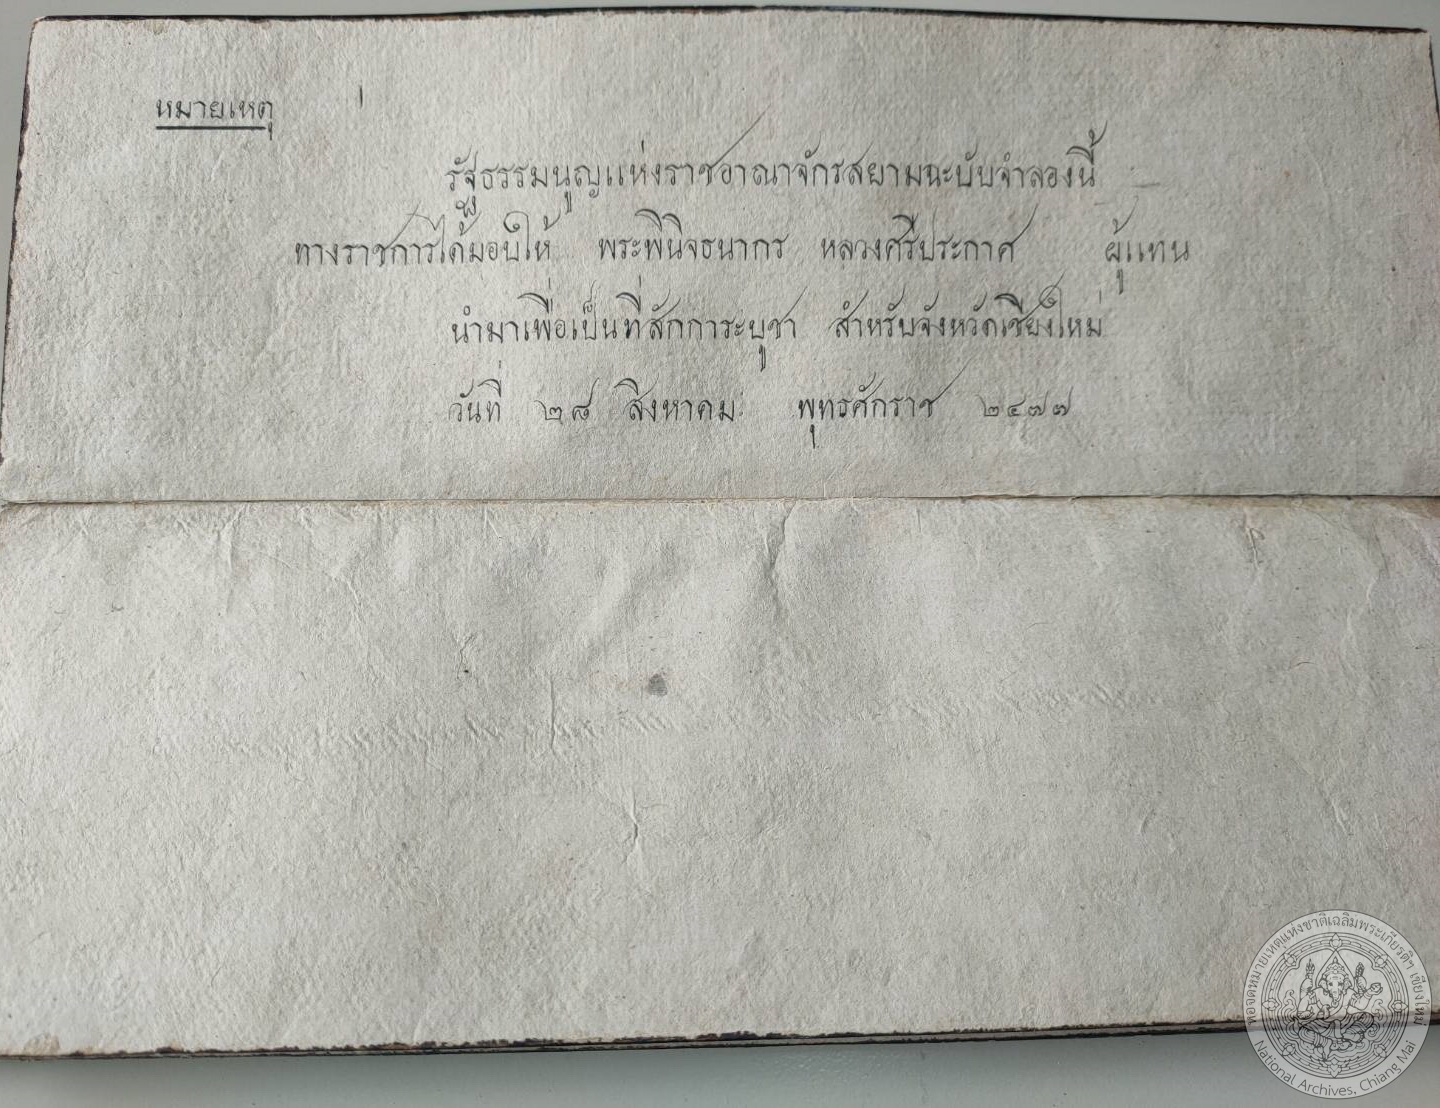 หมายเหตุ
รัฐธรรมนูญแห่งราชอาณาจักรสยามฉะบับจำลองนี้
ทางราชการได้มอบให้ พระพินิจธนากร หลวงศรีประกาศ ผู้แทน
นำมาเพื่อเป็นที่สักการะบูชา สำหรับจังหวัดเชียงใหม่
วันที่ ๒๘ สิงหาคม พุทธศักราช ๒๔๗๗
หอจดหมายเหตุแห่งชาติเฉลิมพระเกียรติฯ เชียงใหม่
National Archives, Chiang Mai